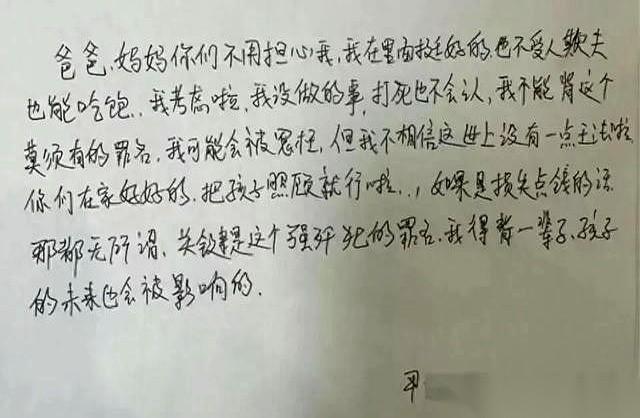 爸爸、妈妈你们不用担心我,我在里面挺好的,也不受人欺夫
也能吃饱..我考虑啦,我没做的事,打死也不会认,我不能背这个
莫须有的罪名,我可能会被冤枉,但我不相信这世上没有一点王法啦
你们在家好好的.把孩子照顾就行啦..,如果是损失点钱的话
那都无所谓,关键是这个强歼犯的罪名.我得背一辈子.孩子
的未来也会被影响的.